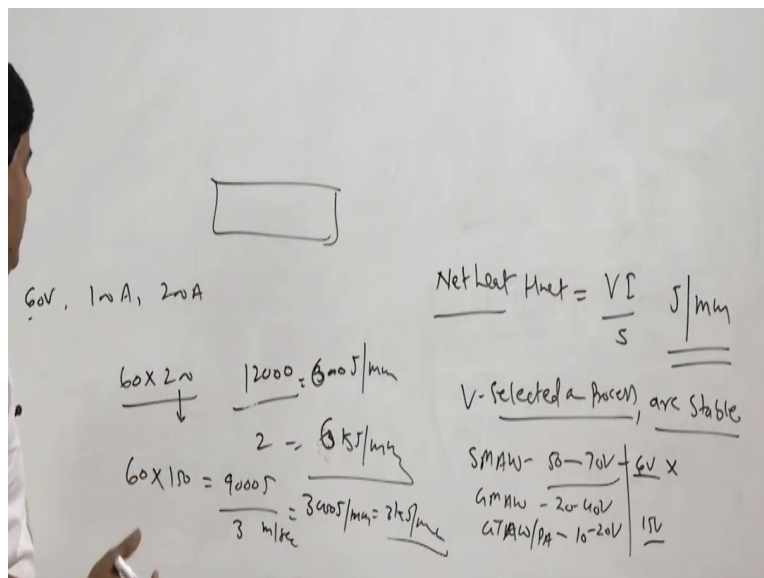 60V, 100A, 200A
60 X 200 12000 = 6000 J/mm
2 = 6 KJ/mm
60 X 150 = 9000 J = 3000 J/mm = 3 KJ/mm
3 m/sec
Net heat Hnet = VI J/mm
S
V - Selected a Process, are Stable
SMAW - 50-70V 60V X
GMAW - 20-40V
GTAW/PA - 10-20V 15V